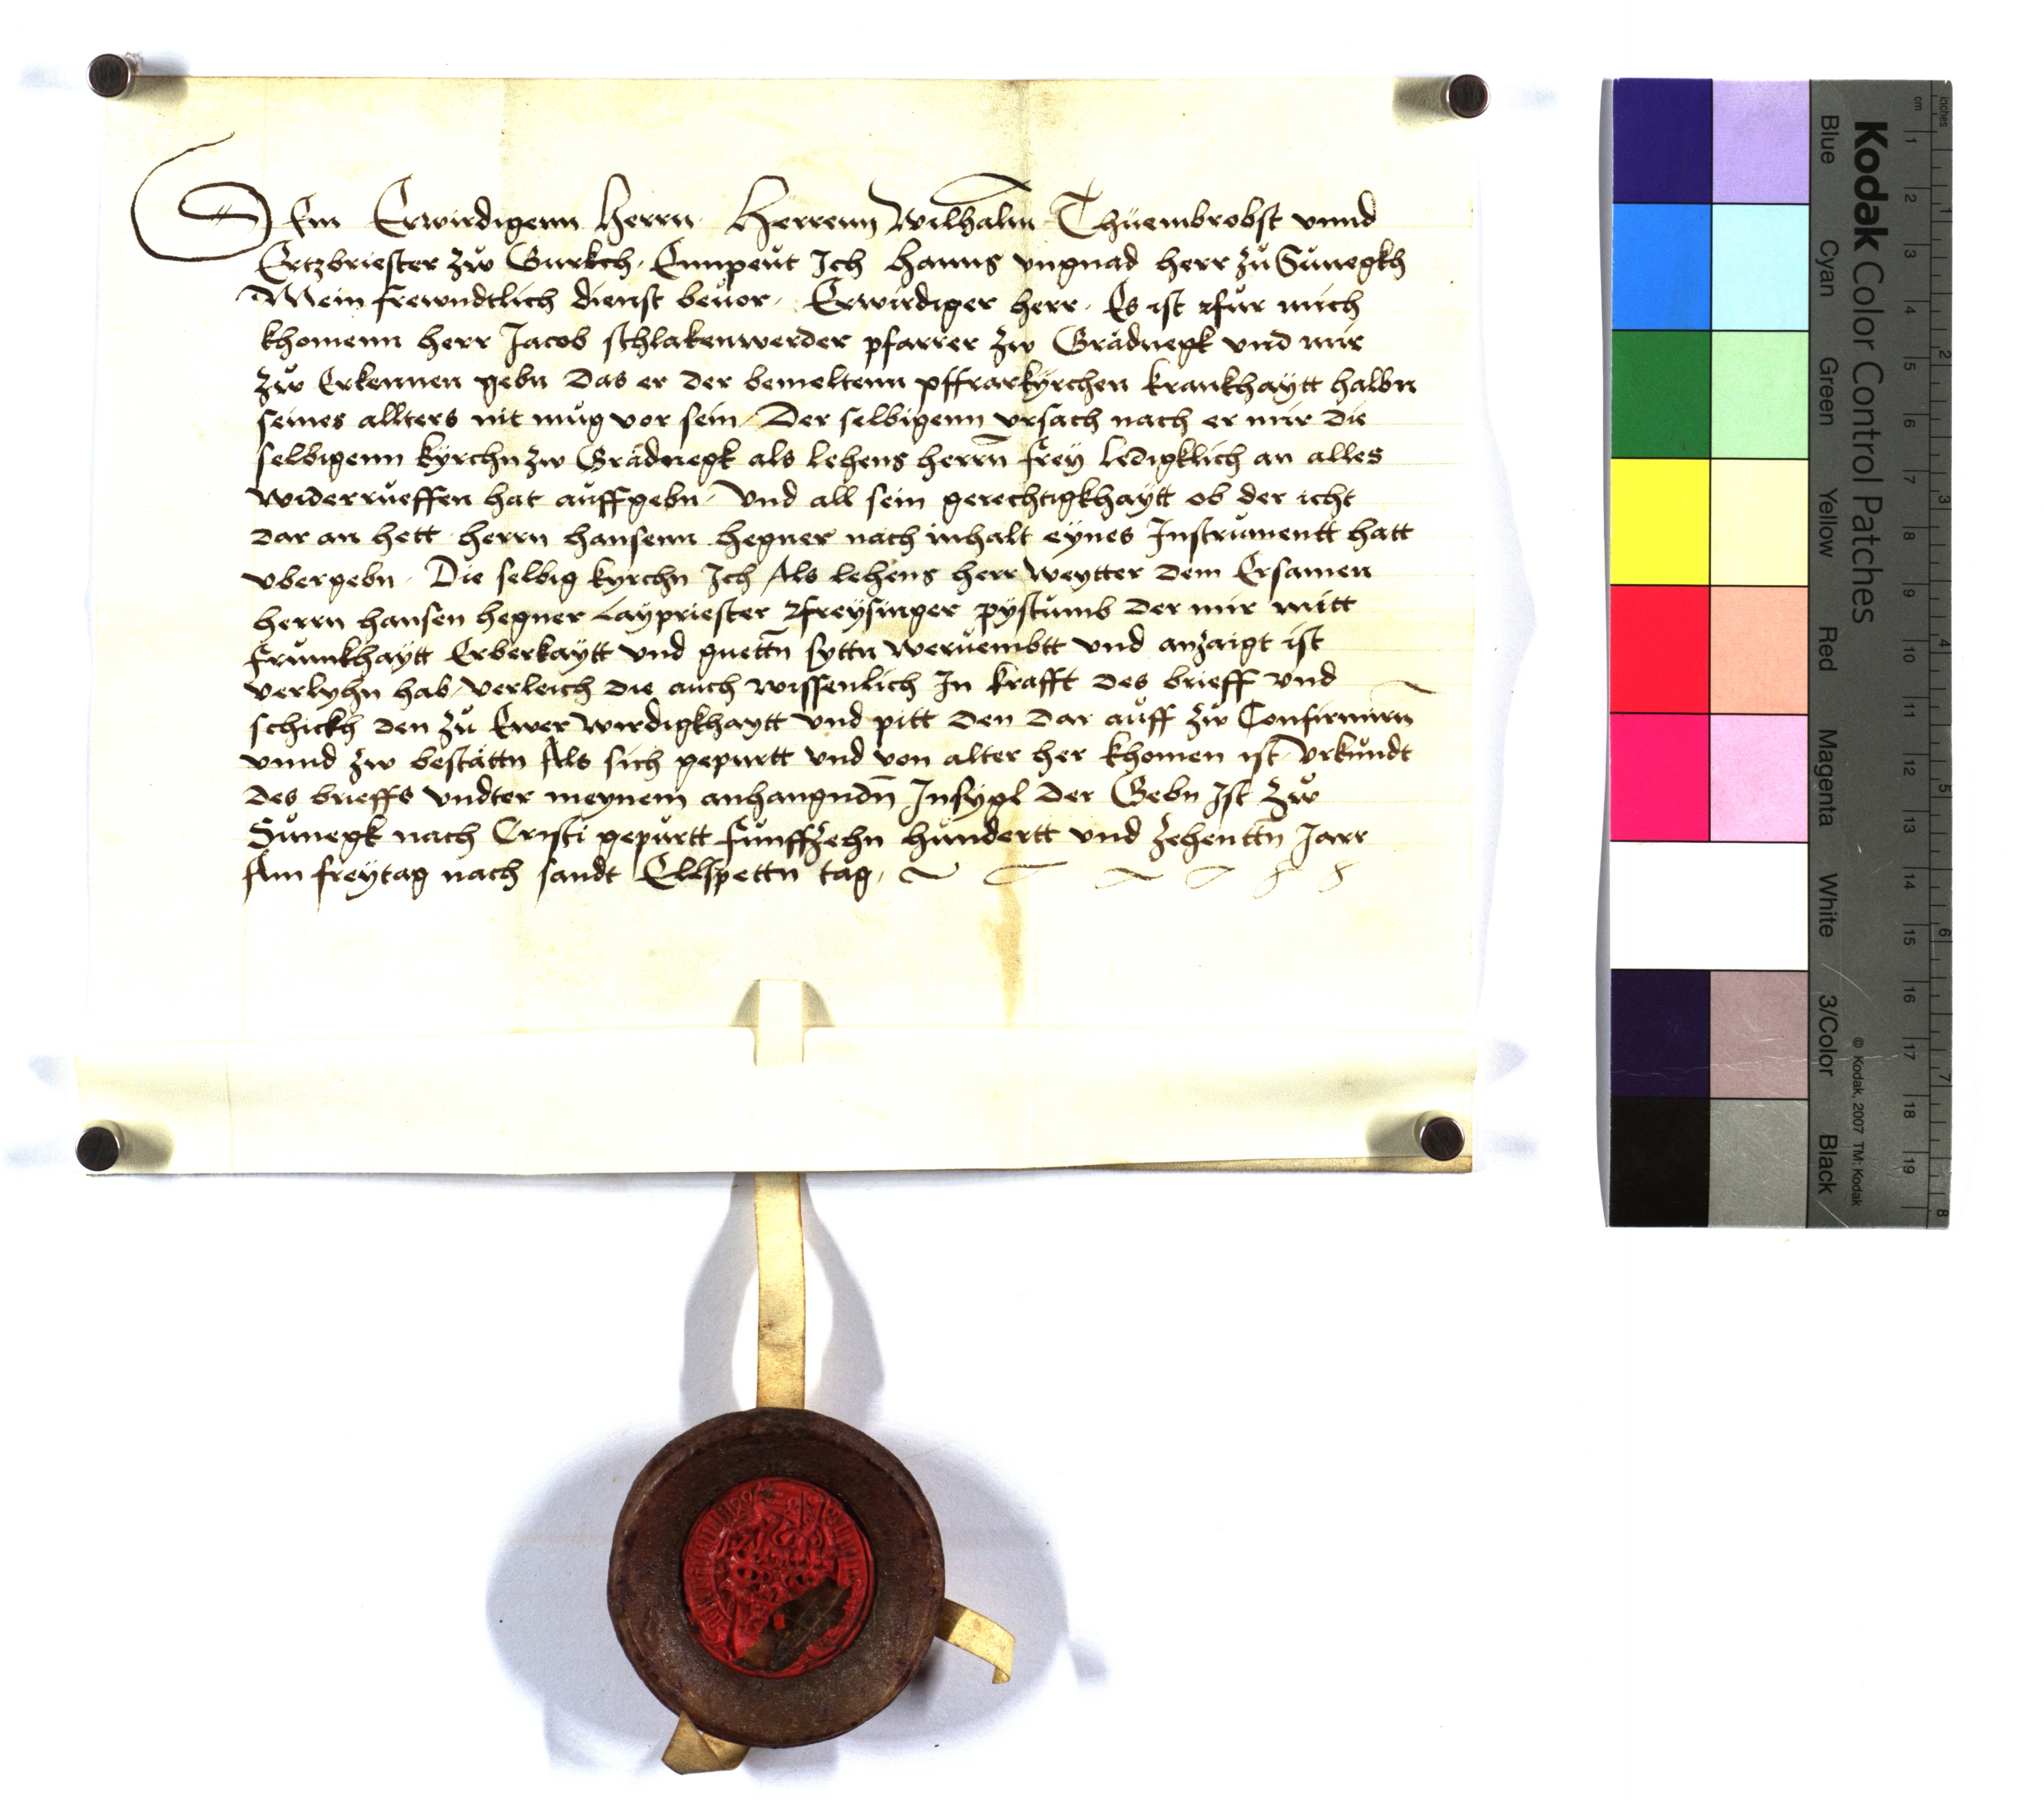 Dem Erwirdigenn Herrn Herrenn Wilhalm Thuembrobst vnnd
Ertzbriester zw Gurkch, Ennpeut Ich Hanns vngnad herr zu Sunegkh
Mein frewndtlich dienst beuor. Erwirdiger herr. Es ist fur mich
khomenn herr Jacob schlakenwerder pfarrer zw Grädnegk vnd mir
zw Erkennen gebn das er der bemeltenn pffrarkyrchen krankhaytt halbn
seines allters nit mug vor sein. Der selbigenn vrsach nach er mir die
selbigenn kyrchn zw Grädnegk als lehens herrn frey ledigklich an alles
widerrueffen hat auffgebn. Vnd all sein gerechtigkhaytt ob der icht
dar an hett herrn hansenn hegner nach inhalt eynes Instrumentt hatt
vbergebn. Die selbig kyrchn Ich Als lehens herr weytter dem Ersamen
herrn hansen hegner Laypriester Freysinger pystumb der mir mitt
frumkhaytt Erberkaytt vnd guettn syttn weruembtt vnd anzaigt ist
verlyhn hab, verleich die auch wissenlich In krafft des brieff vnd
schickh den zu Ewer wirdigkhaytt vnd pitt den dar auff zw Confirmirn
vnnd zw bestättn Als sich gepurtt vnd von alter her khomen ist. Vrkundt
des brieffs vndter meynem anhangndn Insygl der Gebn Ist zw
Sunegk nach Cristi gepurtt funffzehn hundertt vnd zehenttn Jarr
Am freytag nach sandt Elspettn tag.
Kodak Color Control Patches
Blue Cyan Green Yellow Red Magenta White 3/Color Black
© Kodak, 2007 TM: Kodak
cm 1 2 3 4 5 6 7 8 9 10 11 12 13 14 15 16 17 18 19
inches 1 2 3 4 5 6 7 8